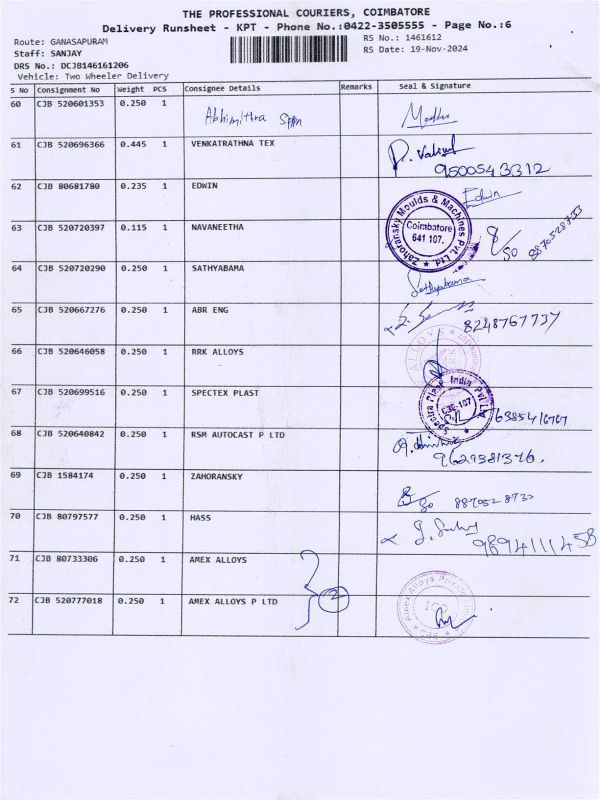 THE PROFESSIONAL COURIERS, COIMBATORE
Delivery Runsheet - KPT - Phone No.:0422-3505555 - Page No.:6
Route: GANASAPURAM
RS No.: 1461612
Staff: SANJAY
RS Date: 19-Nov-2024
DRS No.: DCJB146161206
Vehicle: Two Wheeler Delivery
S No Consignment No Weight PCS Consignee Details Remarks Seal & Signature
60 CJB 520601353 0.250 1 Abhimithra
61 CJB 520696366 0.445 1 VENKATRATHNA TEX
9500543312
62 CJB 80681780 0.235 1 EDWIN Edwin
Zahoransky Moulds & Machines Pvt. Ltd
Coimbatore
641 107.
63 CJB 520720397 0.115 1 NAVANEETHA
8870528733
64 CJB 520720290 0.250 1 SATHYABAMA Sathyabama
65 CJB 520667276 0.250 1 ABR ENG 8248767737
66 CJB 520646058 0.250 1 RRK ALLOYS
ALLOYS
67 CJB 520699516 0.250 1 SPECTEX PLAST
India Pvt Ltd
CBE-107
6385416767
68 CJB 520640842 0.250 1 RSM AUTOCAST P LTD
9629381376.
69 CJB 1584174 0.250 1 ZAHORANSKY
70 CJB 80797577 0.250 1 HASS
9894111458
71 CJB 80733306 0.250 1 AMEX ALLOYS
2
72 CJB 520777018 0.250 1 AMEX ALLOYS P LTD
Amex Alloys Private
CBE